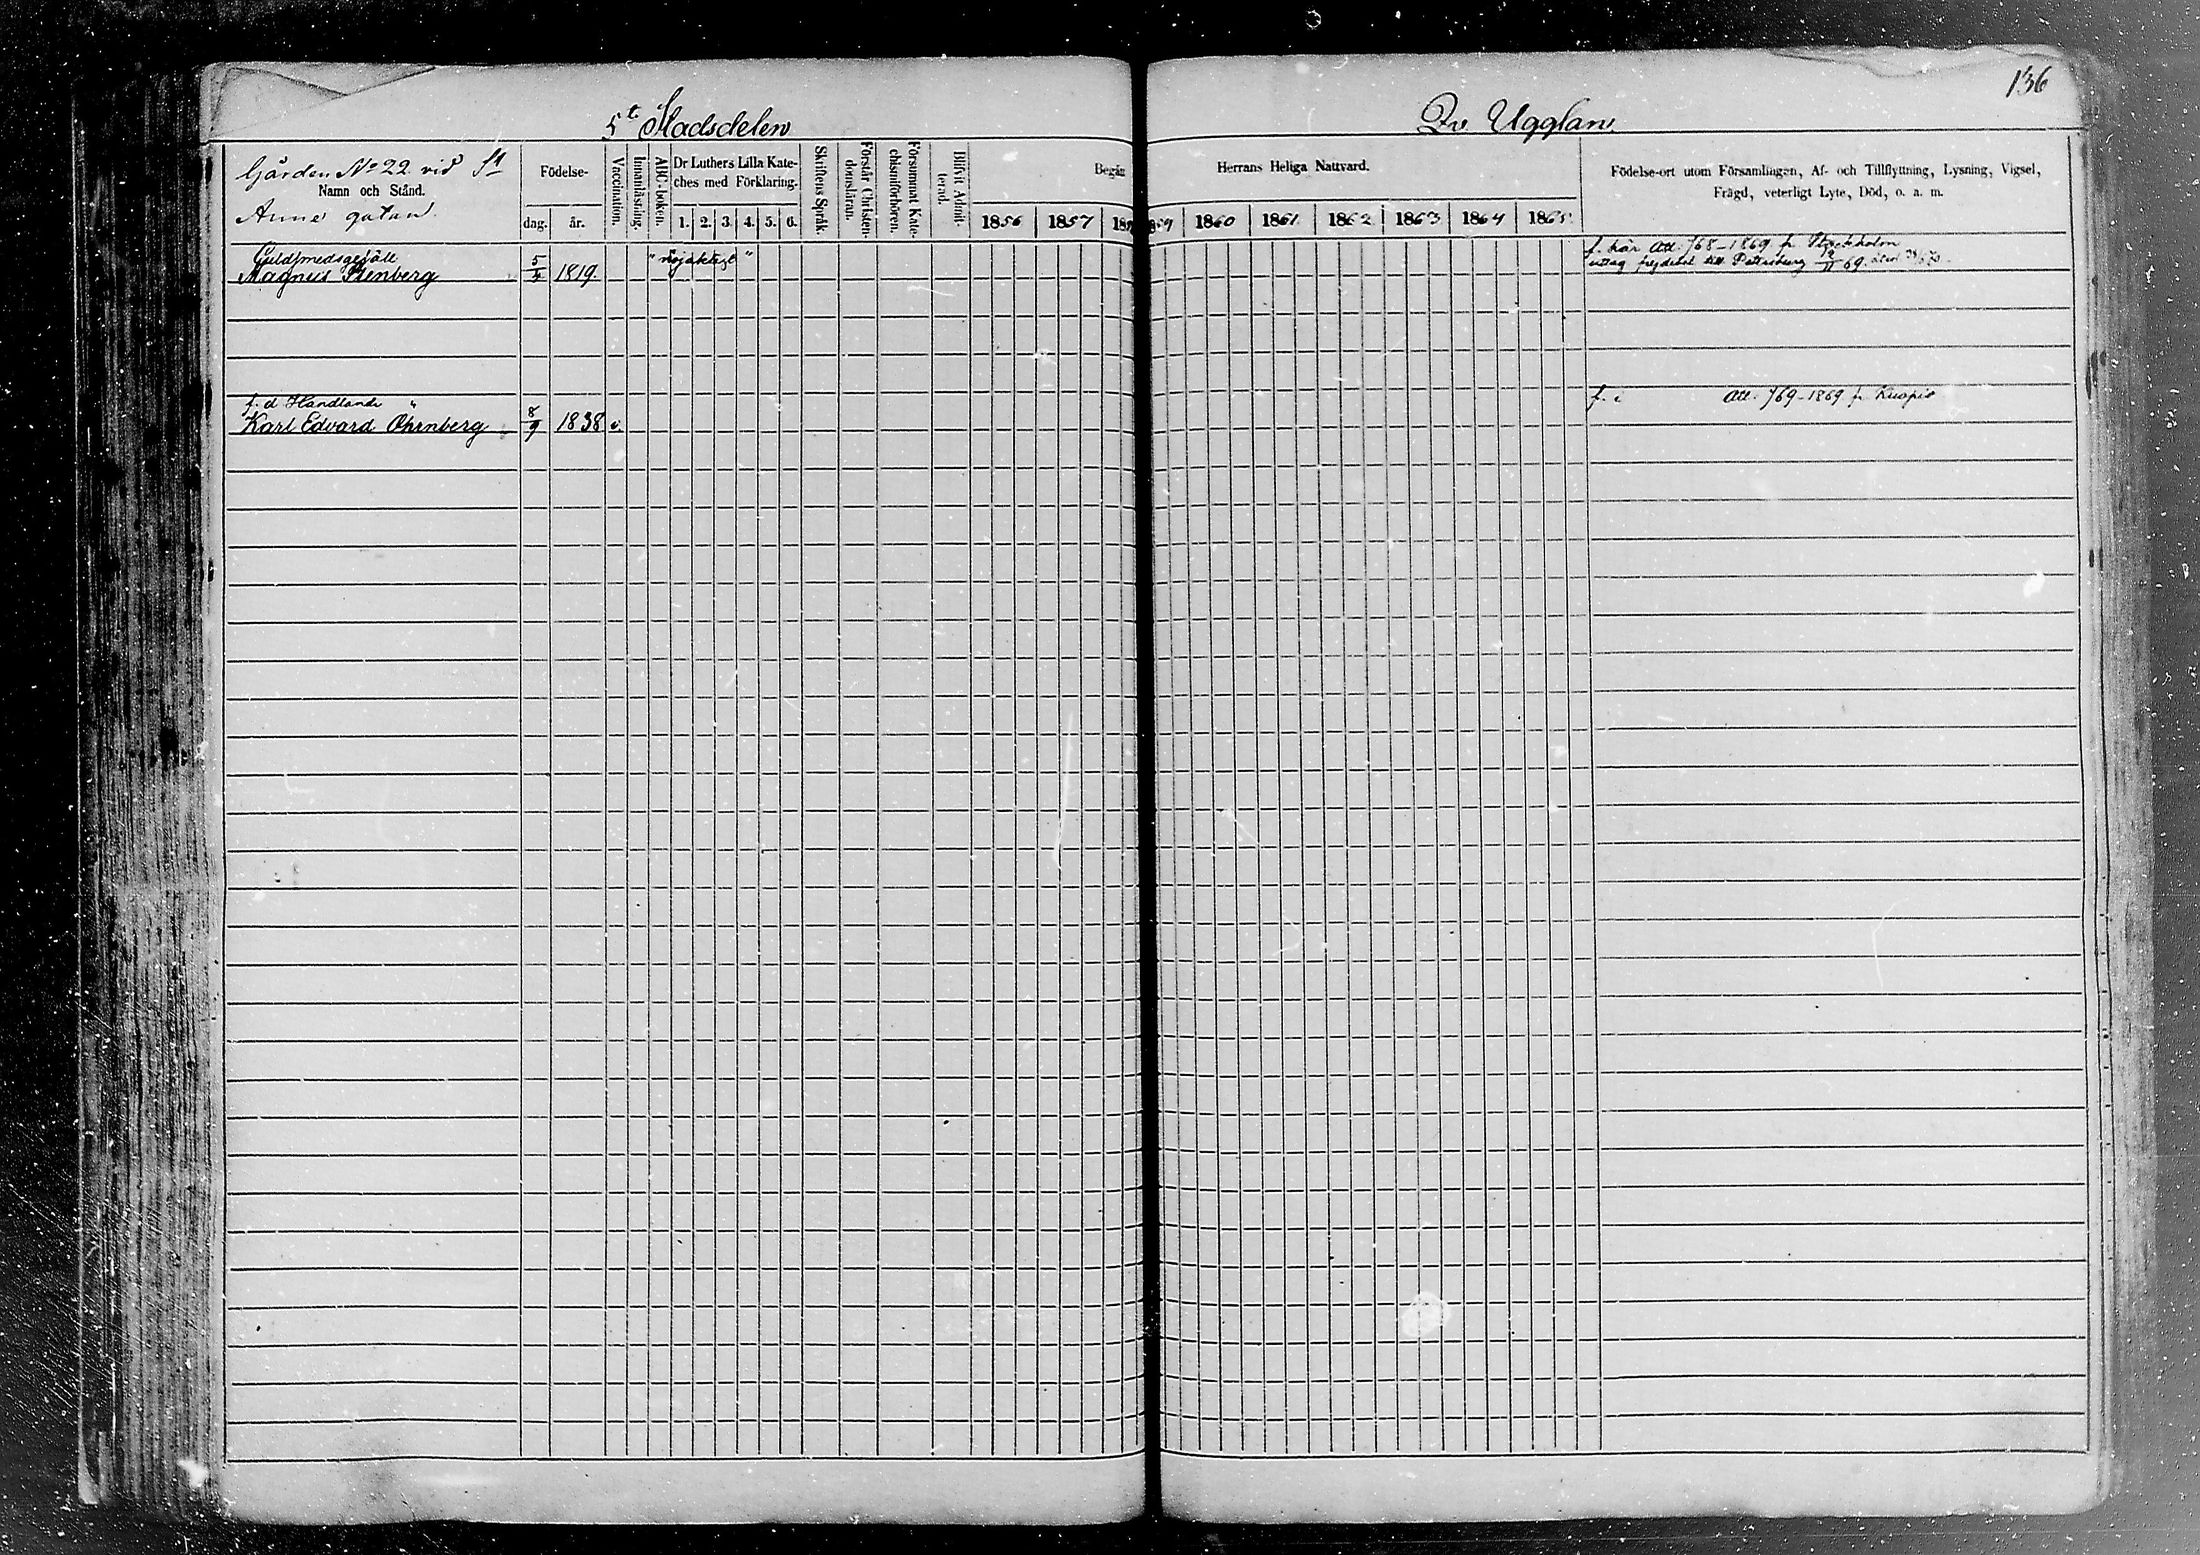 136
5te Stadsdelen
Qv Ugglan
Gården No 22 vid St
Namn och Stånd.
Anne gatan.
Födelse-
dag. år.
Vaccination.
Innanläsning.
ABC-boken.
Dr Luthers Lilla Kate-
ches med Förklaring.
1. 2. 3. 4. 5. 6.
Skriftens Språk.
Förstår Christen-
domsläran.
Försummat Kate-
chismiförhören.
Blifvit Admit-
terad.
Begån Herrans Heliga Nattvard.
1856 1857 185 859 1860 1861 1862 1863 1864 1865
Födelse-ort utom Församlingen, Af- och Tillflyttning, Lysning, Vigsel,
Frägd, veterligt Lyte, Död, o. a. m.
Guldsmedsgesäll
Magnus Stenberg 5/4 1819. "nöjaktigt"
f. här Att. 768-1869 fr Stockholm
uttag frejdebet till Petersburg 12/11 69.
f. d Handlande
Karl Edvard Öhrnberg 8/9 1838 v.
f. i Att. 769-1869 fr Kuopio